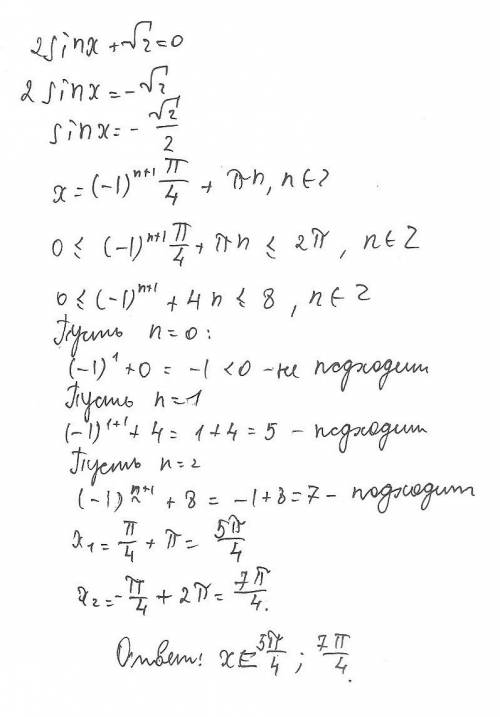 2sinx+√2=0
2sinx=-√2
sinx=-√2/2
x=(-1)ⁿ⁺¹ π/4 + πn, n∈Z
0 ≤ (-1)ⁿ⁺¹ π/4 + πn ≤ 2π, n∈Z
0 ≤ (-1)ⁿ⁺¹ + 4n ≤ 8, n∈Z
Пусть n=0:
(-1)¹+0 = -1 <0 - не подходит
Пусть n=1
(-1)¹⁺¹+4 = 1+4 = 5 - подходит
Пусть n=2
(-1)ⁿ⁺¹ + 8 = -1+8=7 - подходит
x₁=π/4 + π = 5π/4
x₂=-π/4 + 2π = 7π/4.
Ответ: x= 5π/4; 7π/4.